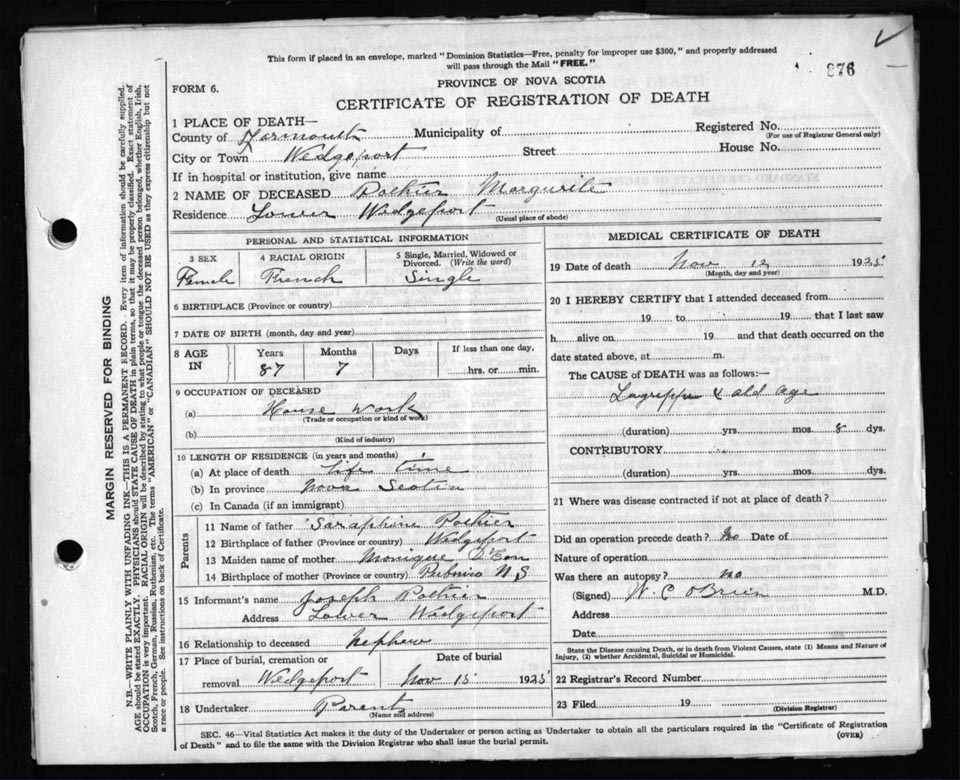 This form if placed in an envelope, marked "Dominion Statistics—Free, penalty for improper use $300," and properly addressed
will pass through the Mail "FREE."
876
PROVINCE OF NOVA SCOTIA
FORM 6.
CERTIFICATE OF REGISTRATION OF DEATH
1 PLACE OF DEATH—
County of Yarmouth Municipality of Registered No.
(For use of Registrar General only)
City or Town Wedgeport Street House No.
If in hospital or institution, give name
2 NAME OF DECEASED Pothier Margurite
Residence Lower Wedgeport
(Usual place of abode)
PERSONAL AND STATISTICAL INFORMATION
3 SEX 4 RACIAL ORIGIN 5 Single, Married, Widowed or
Divorced. (Write the word)
Female French Single
6 BIRTHPLACE (Province or country)
7 DATE OF BIRTH (month, day and year)
8 AGE IN Years Months Days If less than one day,
87 7 hrs. or min.
9 OCCUPATION OF DECEASED
(a) House work
(Trade or occupation or kind of work)
(b)
(Kind of industry)
10 LENGTH OF RESIDENCE (in years and months)
(a) At place of death life time
(b) In province Nova Scotia
(c) In Canada (if an immigrant)
Parents
11 Name of father Saraphine Pothier
12 Birthplace of father (Province or country) Wedgeport
13 Maiden name of mother Monique D'Eon
14 Birthplace of mother (Province or country) Pubnico N S
15 Informant's name Joseph Pothier
Address Lower Wedgeport
16 Relationship to deceased Nephew
17 Place of burial, cremation or Date of burial
removal Wedgeport Nov 15 1925
18 Undertaker Parents
(Name and address)
MEDICAL CERTIFICATE OF DEATH
19 Date of death Nov 12 1925
(Month, day and year)
20 I HEREBY CERTIFY that I attended deceased from
19 to 19 that I last saw
h alive on 19 and that death occurred on the
date stated above, at m.
The CAUSE of DEATH was as follows:—
Lagrippe & old age
(duration) yrs. mos. 8 dys.
CONTRIBUTORY
(duration) yrs. mos. dys.
21 Where was disease contracted if not at place of death?
Did an operation precede death? No Date of
Nature of operation
Was there an autopsy? no
(Signed) W. C O'Brien M.D.
Address
Date
State the Disease causing Death, or in death from Violent Causes, state (1) Means and Nature of
Injury, (2) whether Accidental, Suicidal or Homicidal.
22 Registrar's Record Number
23 Filed 19
(Division Registrar)
SEC. 46—Vital Statistics Act makes it the duty of the Undertaker or person acting as Undertaker to obtain all the particulars required in the "Certificate of Registration
of Death" and to file the same with the Division Registrar who shall issue the burial permit. (OVER)
MARGIN RESERVED FOR BINDING
N.B.—WRITE PLAINLY WITH UNFADING INK—THIS IS A PERMANENT RECORD. Every item of information should be carefully supplied.
AGE should be stated EXACTLY. PHYSICIANS should STATE CAUSE OF DEATH in plain terms, so that it may be properly classified. Exact statement of
OCCUPATION is very important. RACIAL ORIGIN will be described by stating to what people or tongue the deceased person belonged, whether English, Irish,
Scotch, French, German, Russian, Ruthenian, etc. The terms "AMERICAN" or "CANADIAN" SHOULD NOT BE USED as they express citizenship but not
a race or people. See instructions on back of Certificate.